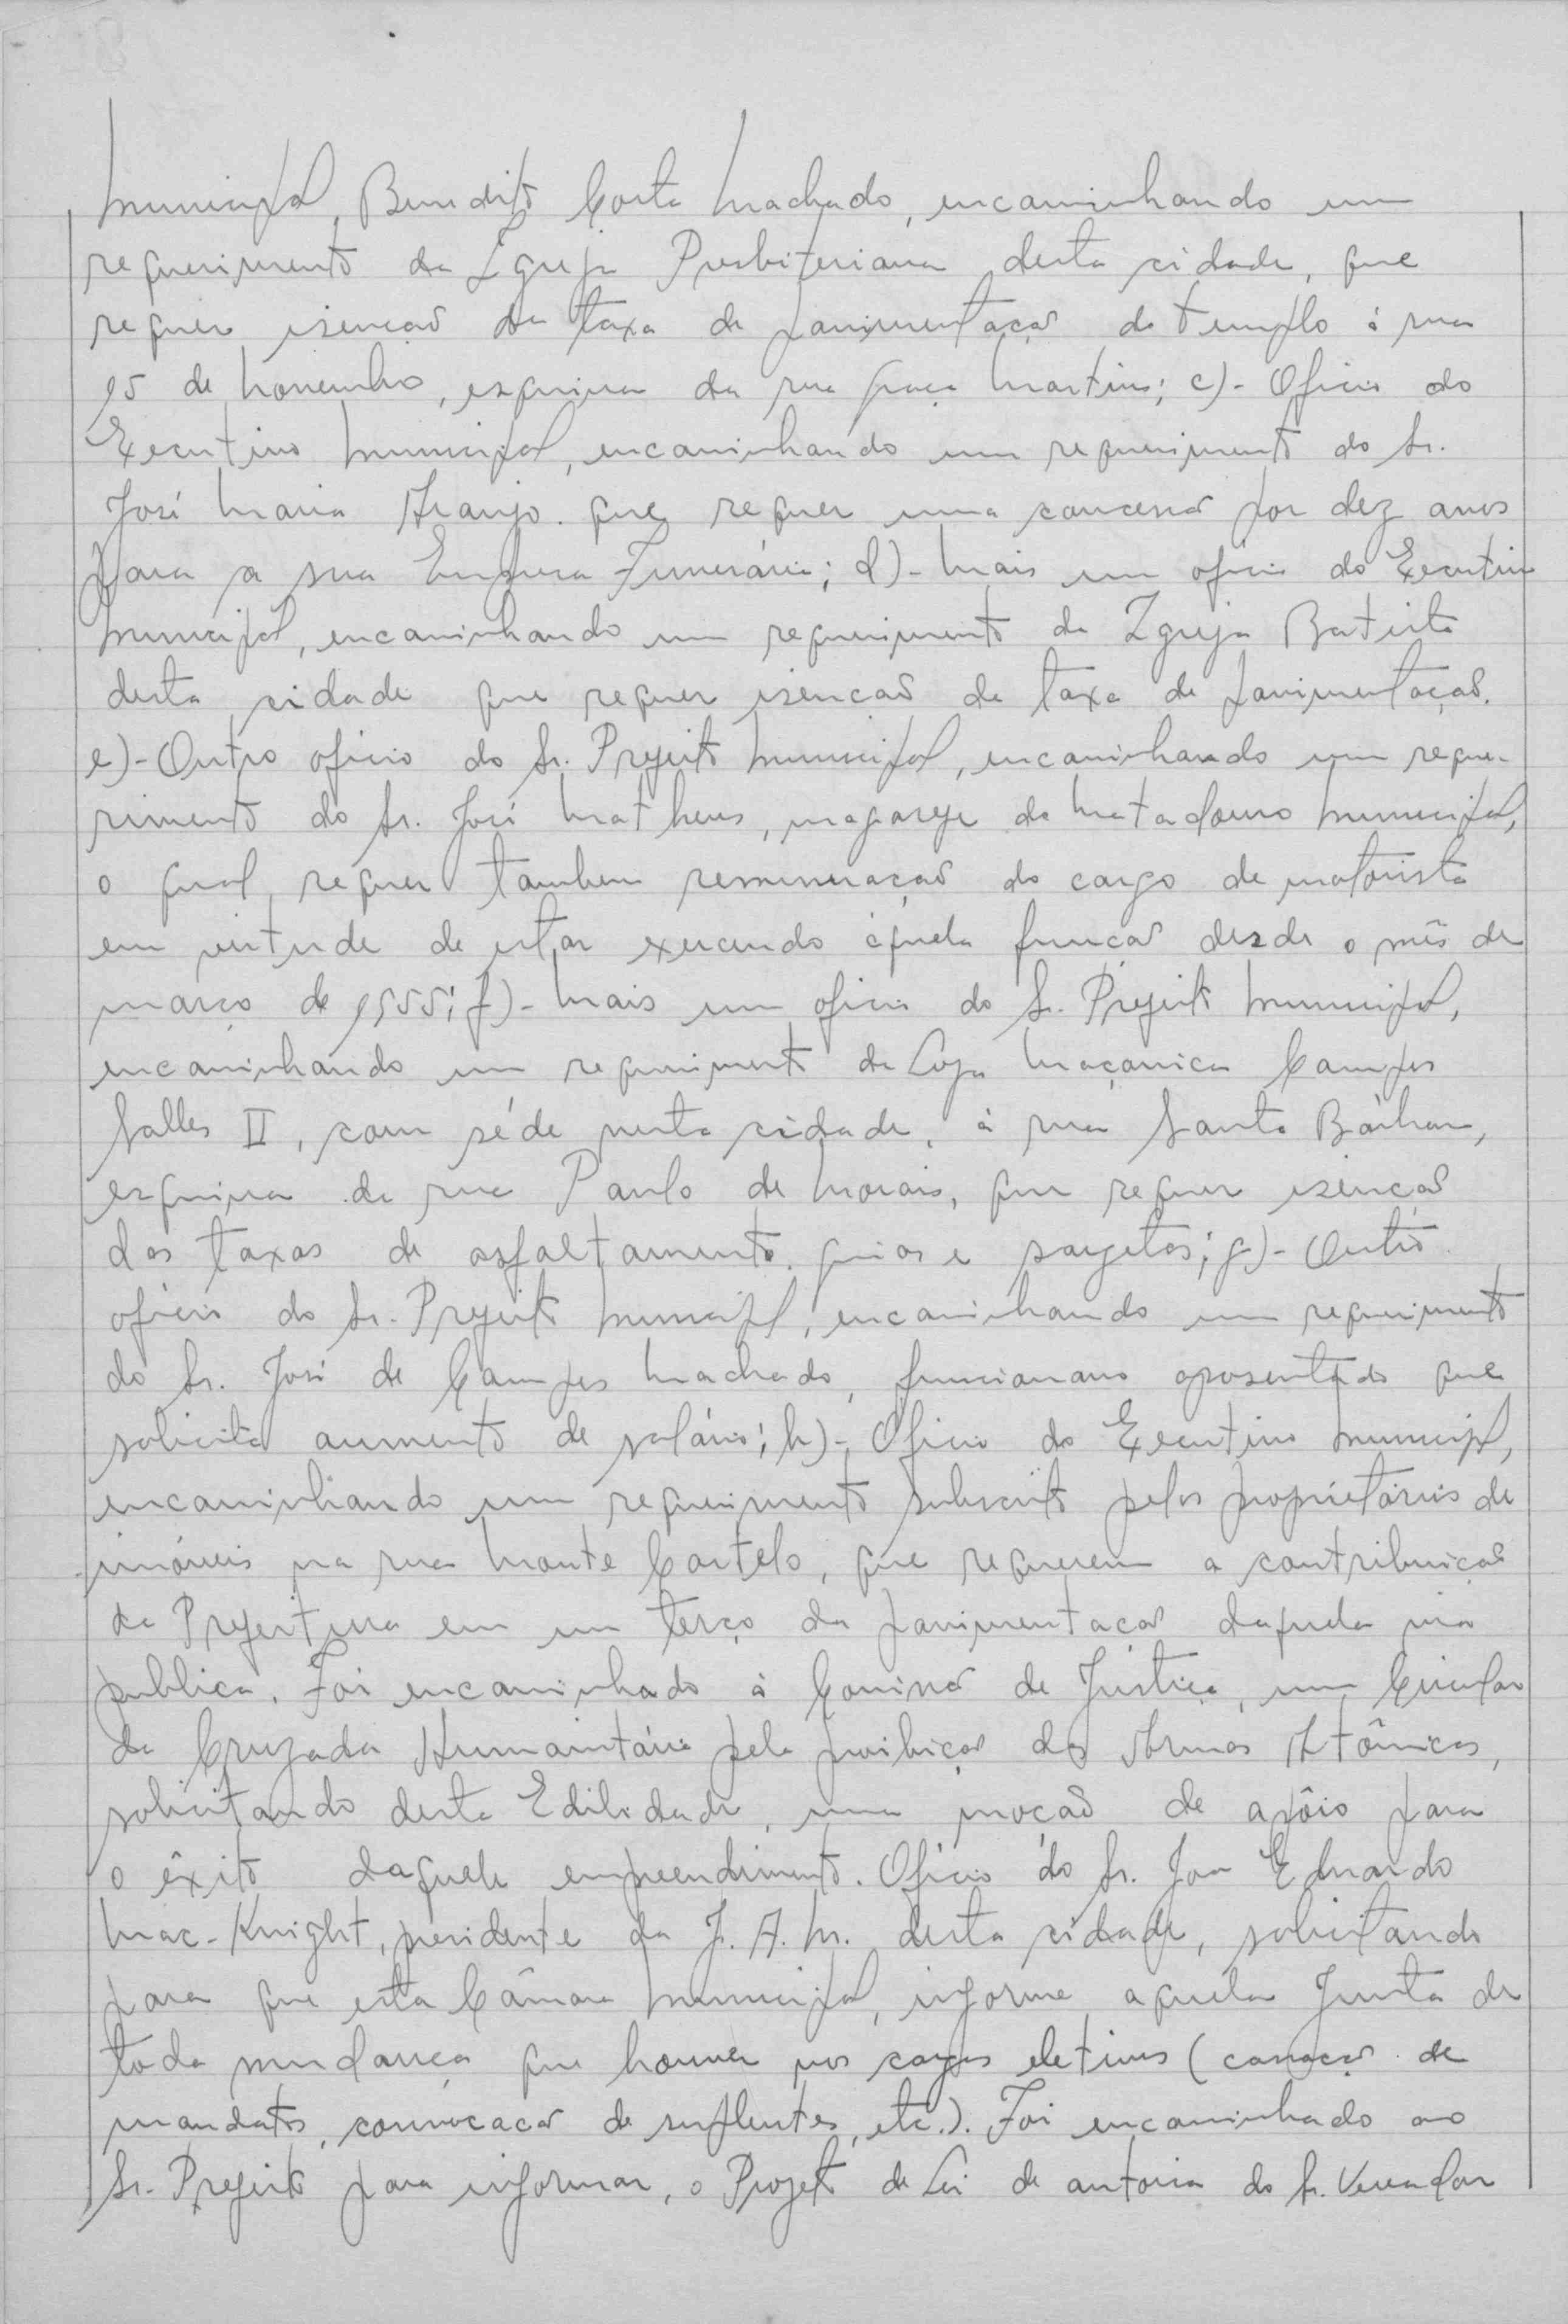 Municipal, Benedito Costa Machado, encaminhando um
requerimento da Igreja Presbiteriana desta cidade, que
requer isenção da taxa de pavimentação do templo á rua
15 de Novembro, esquina da rua Graça Martins; c)- Oficio do
Executivo Municipal, encaminhando um requerimento do Sr.
José Maria Araujo. que requer uma concessão por dez anos
para a sua Empresa Funerária; d)- Mais um oficio do Executivo
Municipal, encaminhando um requerimento da Igreja Batista
desta cidade que requer isenção da taxa de pavimentação.
e)- Outro oficio do Sr. Prefeito Municipal, encaminhando um reque-
rimento do Sr. José Matheus, magarefe do Matadouro Municipal,
o qual requer tambem remuneração do cargo de motorista
em virtude de estar exercendo áquela função desde o mês de
março de 1955; f)- Mais um oficio do Sr. Prefeito Municipal,
encaminhando um requerimento da Loja Maçonica Campos
Salles II, com séde nesta cidade, á rua Santa Bárbara,
esquina da rua Paulo de Morais, que requer isenção
das taxas de asfaltamento, guias e sargetas; g)- Outro
oficio do Sr. Prefeito Municipal, encaminhando um requerimento
do Sr. José de Campos Machado, funcionario aposentado que
solicita aumento de salário; h)- Oficio do Executivo Municipal,
encaminhando um requerimento subscrito pelos proprietários de
imóveis na rua Monte Castelo, que requerem a contribuição
da Prefeitura em um terço da pavimentação daquela via
publica. Foi encaminhado á Comissão de Justiça, um Circular
da Cruzada Humanitária pela proibição das Armas Atômicas,
solicitando desta Edilidade, uma moção de apôio para
o êxito daquele empreendimento. Oficio do Sr. Jon Eduardo
Mac-Knight, presidente da J. A. M. desta cidade, solicitando
para que esta Câmara Municipal, informe aquela Junta de
toda mudança que houver nos cargos eletivos (cassação de
mandatos, convocação de suplentes, etc.). Foi encaminhado ao
Sr. Prefeito para informar, o Projeto de Lei de autoria do Sr. Vereador